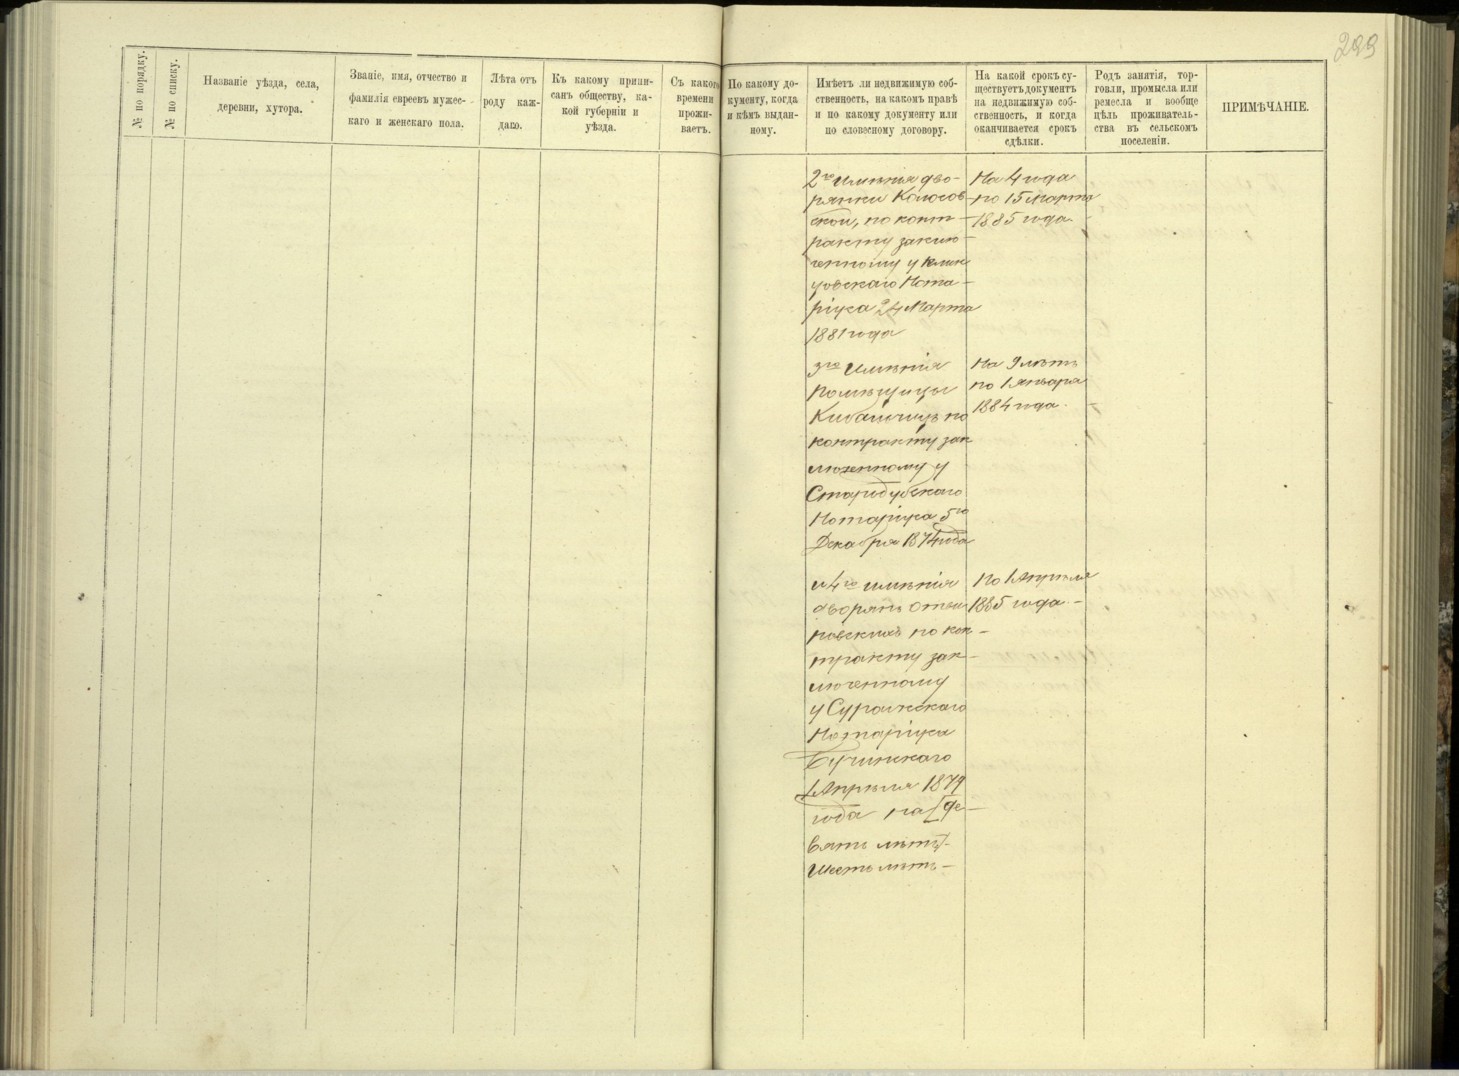 299
№ по порядку.
№ по списку.
Названіе уѣзда, села,
деревни, хутора.
Званіе, имя, отчество и
фамилія евреевъ мужес-
каго и женскаго пола.
Лѣта отъ
роду каж-
даго.
Къ какому припи-
санъ обществу, ка-
кой губерніи и
уѣзда.
Съ какого
времени
прожи-
ваетъ.
По какому до-
кументу, когда
и кѣмъ выдан-
ному.
Имѣетъ ли недвижимую соб-
ственность, на какомъ правѣ
и по какому документу или
по словесному договору.
На какой срокъ су-
ществуетъ документъ
на недвижимую соб-
ственность, и когда
оканчивается срокъ
сдѣлки.
Родъ занятія, тор-
говли, промысла или
ремесла и вообще
цѣль проживатель-
ства въ сельскомъ
поселеніи.
ПРИМѢЧАНІЕ.
2го имѣнія дво-
рянки Колосов-
ской, по конт-
ракту заклю-
ченному у Клин
цовскаго Нота-
ріуса 24 Марта
1881 года
На 4 года
по 15 Марта
1885 года
3го имѣнія
помѣщицы
по
контракту зак
люченному у
Стародубскаго
Нотаріуса 5го
Декабря 1874 года
На 9 лѣтъ
по 1 Января
1884 года.
и 4го имѣнія
дворянъ
по кон-
тракту зак-
люченному
у Суражскаго
Нотаріуса
Бучинскаго
1 Апрѣля 1879
года на [де-
вять лѣтъ]-
шесть лѣтъ-
По 1 Апрѣля
1885 года-